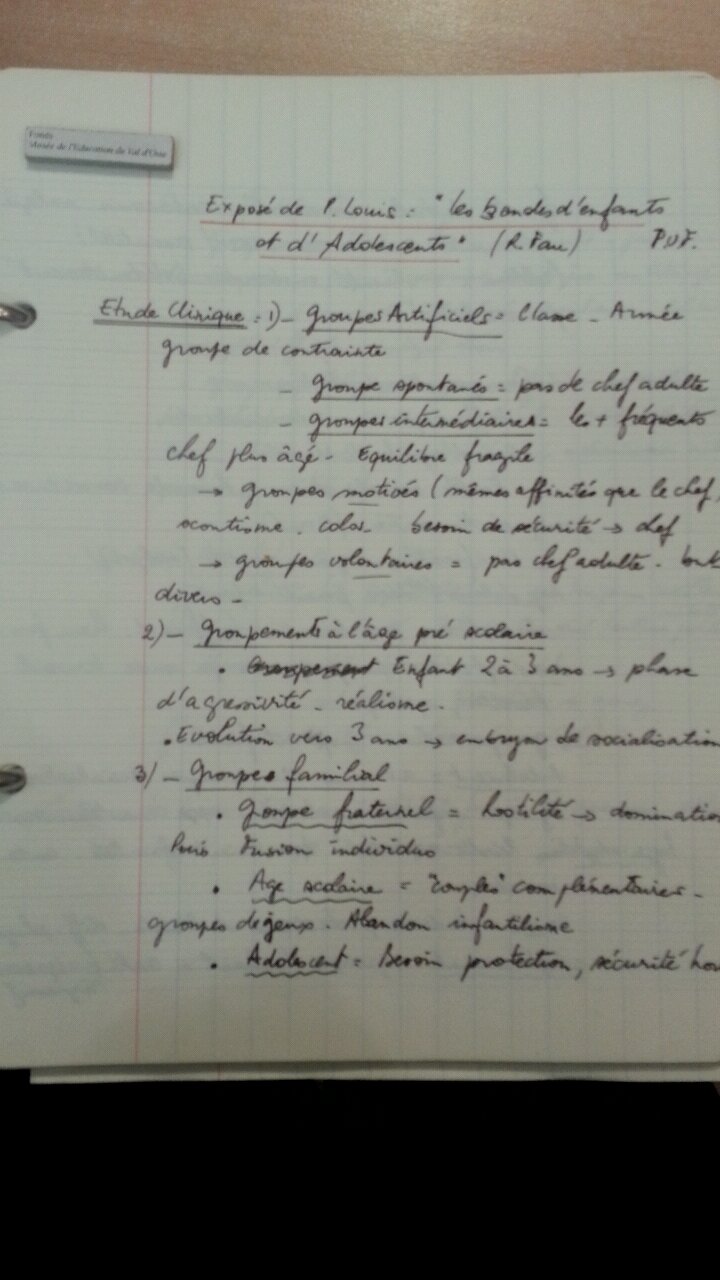 Fonds
Musée de l'Education du Val d'Oise
Exposé de P. Louis : "les bandes d'enfants
et d'Adolescents" (R. Fau) P.U.F.
Etude Clinique : 1) - groupes Artificiels = Classe - Armée
groupe de contrainte
- groupe spontanés = pas de chef adulte
- groupes intermédiaires = les + fréquents
chef plus âgé - Equilibre fragile
→ groupes motivés (mêmes affinités que le chef,
scoutisme. colos. besoin de sécurité → chef
→ groupes volontaires = pas chef adulte. buts
divers -
2) - Groupements à l'âge pré scolaire
• Groupement Enfant 2 à 3 ans → phase
d'agressivité - réalisme.
• Evolution vers 3 ans → embryon de socialisation
3) - Groupes familial
• Groupe fraternel = hostilité → domination
Puis Fusion individus
• Age scolaire = "couples" complémentaires -
groupes de jeux. Abandon infantilisme
• Adolescent = Besoin protection, sécurité